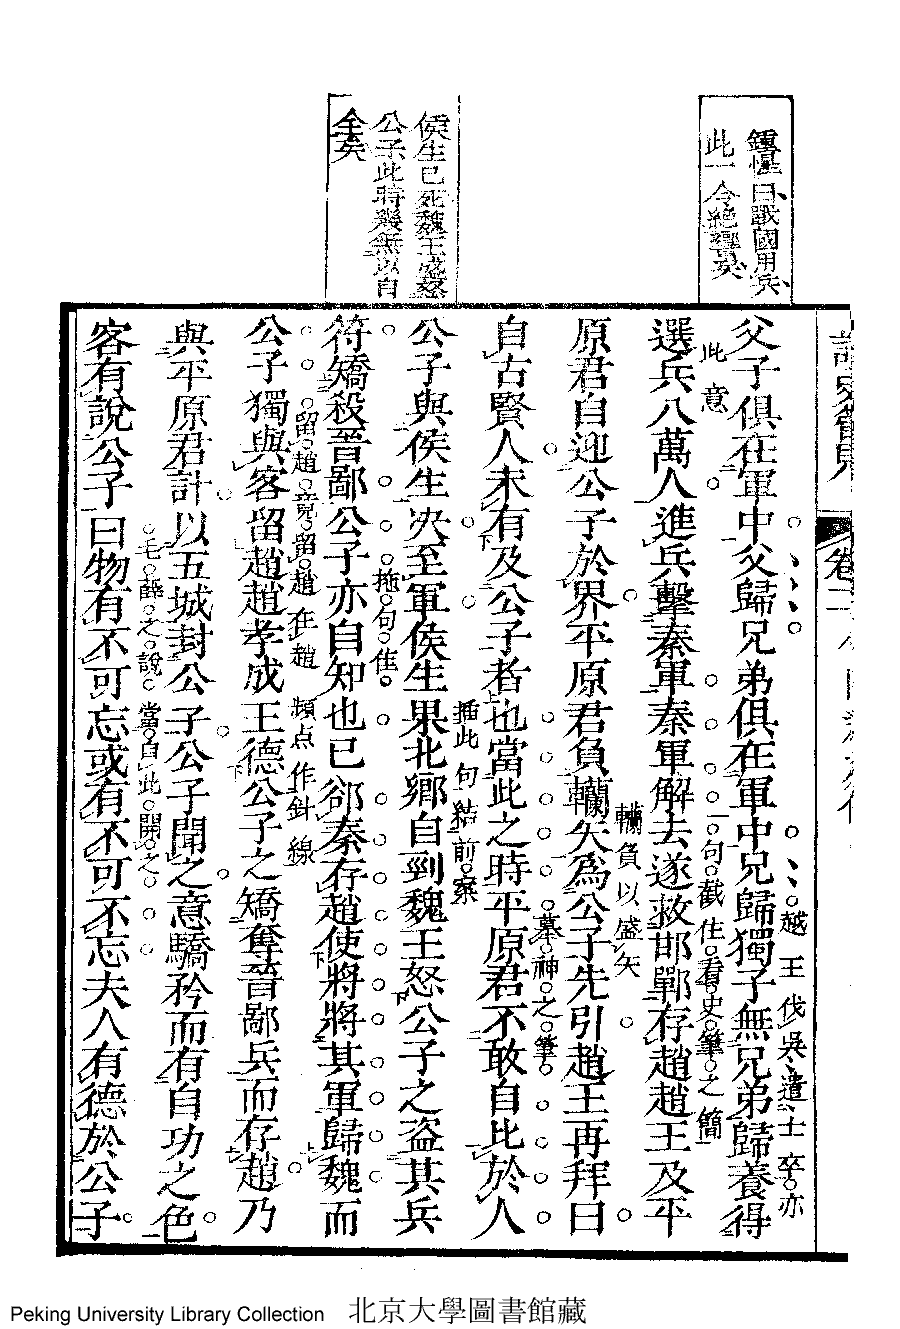 鍾惺曰戰國用兵
此一令絕響矣
侯生已死魏王盛怒
公子此時幾無以自
全矣
卷二
越王伐吳遣士卒亦
父子俱在軍中父歸兄弟俱在軍中兄歸獨子無兄弟歸養得
此意
一句截住看史筆之簡
選兵八萬人進兵擊秦軍秦軍解去遂救邯鄲存趙趙王及平
韊負以盛矢
原君自迎公子於界平原君負韊矢為公子先引趙王再拜曰
摹神之筆
自古賢人未有及公子者也當此之時平原君不敢自比於人
插此句結前案
公子與侯生決至軍侯生果北鄉自剄魏王怒公子之盜其兵
拖句住
符矯殺晉鄙公子亦自知也已卻秦存趙使將將其軍歸魏而
留趙竟留趙在趙頻点作針線
公子獨與客留趙趙孝成王德公子之矯奪晉鄙兵而存趙乃
與平原君計以五城封公子公子聞之意驕矜而有自功之色
毛薛之說當自此開之
客有說公子曰物有不可忘或有不可不忘夫人有德於公子
Peking University Library Collection 北京大學圖書館藏